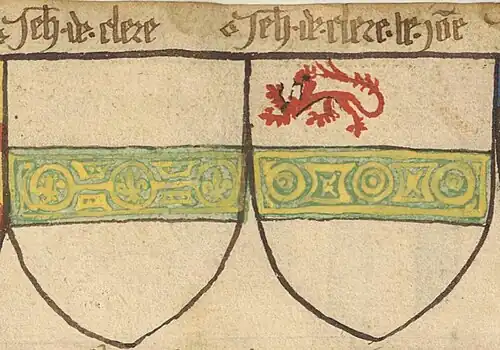 Joh · de · clere
Joh · de · clere · le · joe